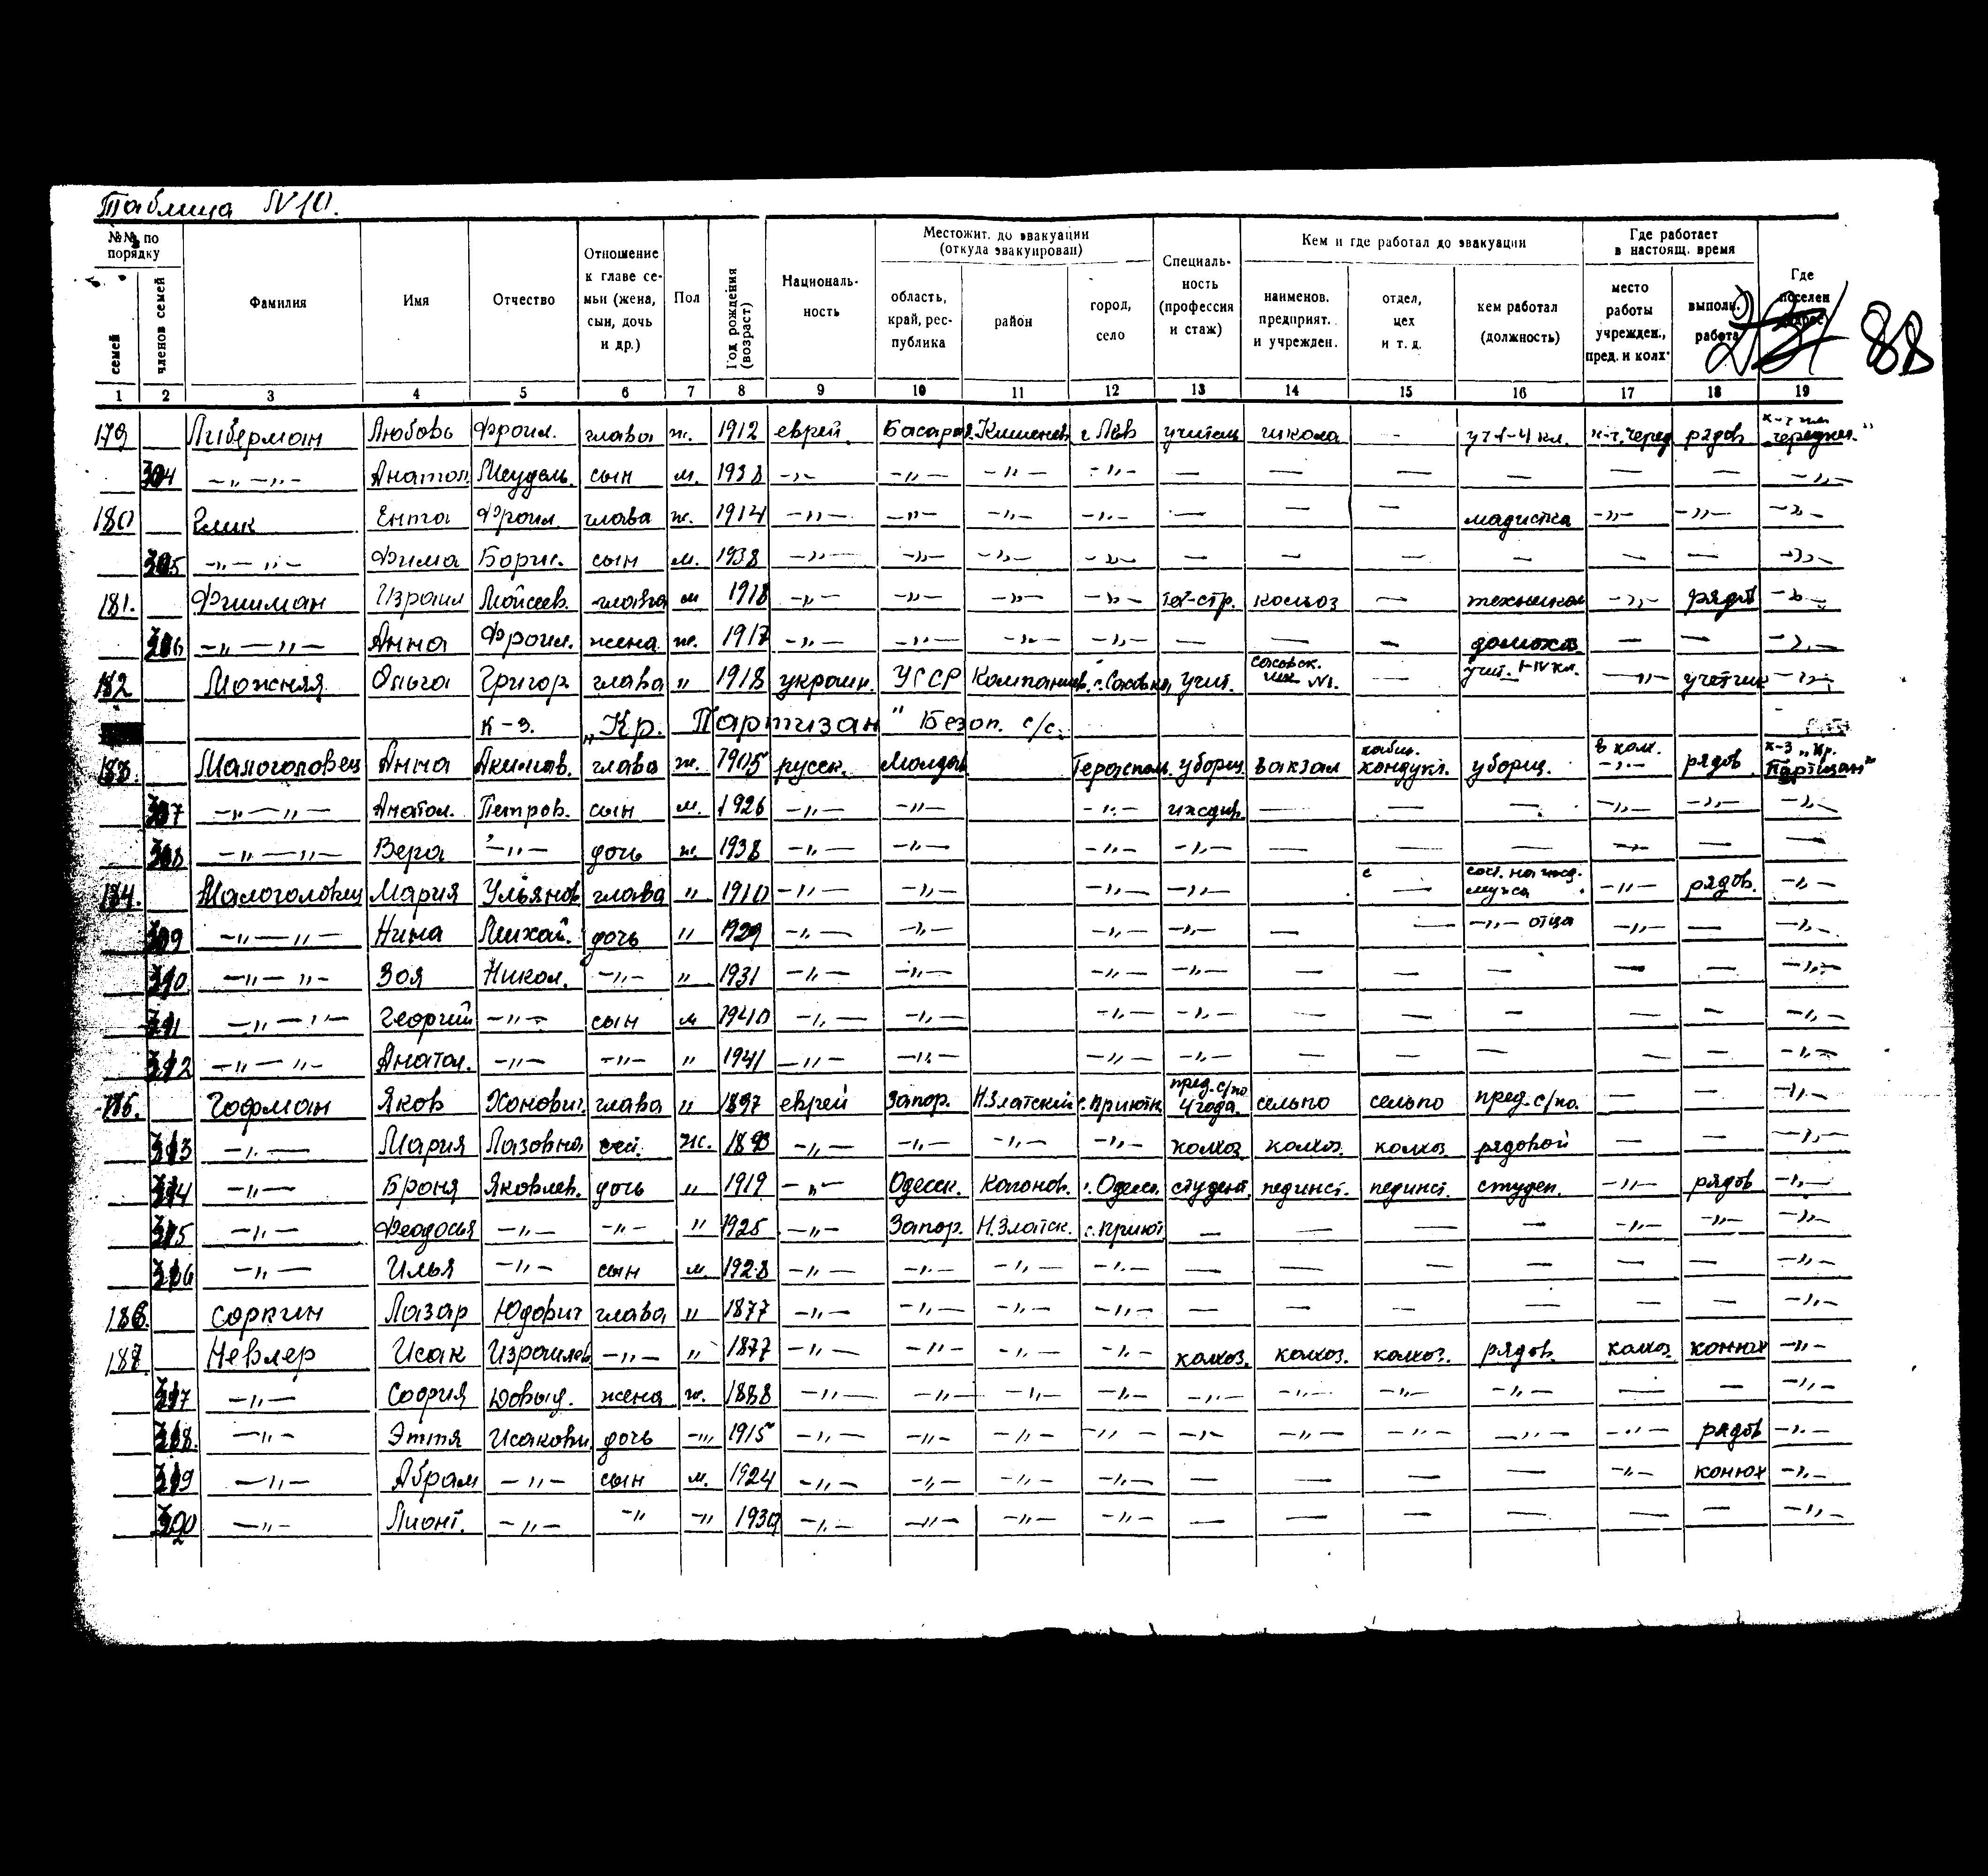 Таблица N 10.
№№ по порядку | Фамилия | Имя | Отчество | Отношение к главе семьи (жена, сын, дочь и др.) | Пол | Год рождения (возраст) | Националь-ность | Местожит. до эвакуации (откуда эвакуирован) | Специаль-ность (профессия и стаж) | Кем и где работал до эвакуации | Где работает в настоящ. время | Где поселен
семей | членов семей | область, край, рес-публика | район | город, село | наименов. предприят. и учрежден. | отдел, цех и т. д. | кем работал (должность) | место работы учрежден., пред. и колх. | выполн. работа | 88
1 | 2 | 3 | 4 | 5 | 6 | 7 | 8 | 9 | 10 | 11 | 12 | 13 | 14 | 15 | 16 | 17 | 18 | 19
179 | Либерман | Любовь | Фроил. | глава | ж. | 1912 | еврей | учитель | школа | - | уч 1-4 кл. | рядов
-„-„- | Анатол | сын | м. | 1938 | -„- | -„- | -„- | -„- | — | — | — | — | — | — | -„-
180 | Ента | Фроил | глава | ж. | 1914 | -„- | -„- | -„- | -„- | — | — | — | -„- | -„- | -„-
-„-„- | Фима | Борис. | сын | м. | 1938 | -„- | -„- | -„- | -„- | — | — | — | — | — | — | -„-
181. | Фишман | Израил | Мойсеев. | глава | м | 1918 | -„- | -„- | -„- | -„- | — | -„- | рядов | -„-
-„-„- | Анна | Фроил. | жена | ж. | 1917 | -„- | -„- | -„- | -„- | — | — | — | домохоз. | — | — | -„-
182 | Можняя | Ольга | Григор | глава | „ | 1918 | украин. | УССР | учит. | — | учит. I-IV кл. | -„- | учетчик | -„-
к-з. „Кр. Партизан" Безоп. с/с.
183. | Малоголовец | Анна | Акимов. | глава | ж. | 1905 | русск. | Молдав | уборщ. | вокзал | уборщ. | в колх. -„- | рядов. | к-з „Кр. Партизан"
307 | -„-„- | Анатол. | Петров. | сын | м. | 1926 | -„- | -„- | -„- | иждив. | — | — | — | -„- | -„- | -„-
308 | -„-„- | Вера | -„- | дочь | ж. | 1938 | -„- | -„- | -„- | -„- | — | — | — | — | — | —
184. | Малоголовец | Мария | Ульянов | глава | „ | 1910 | -„- | -„- | -„- | -„- | — | сост. на ижд. мужа | -„- | рядов. | -„-
309 | -„-„- | Нина | Михай. | дочь | „ | 1929 | -„- | -„- | -„- | -„- | — | — | -„- отца | -„- | — | -„-
310 | -„-„- | Зоя | Никол. | -„- | „ | 1931 | -„- | -„- | -„- | -„- | — | — | — | — | — | -„-
311 | -„-„- | Георгий | -„- | сын | м | 1940 | -„- | -„- | -„- | -„- | — | — | — | — | — | -„-
312 | -„-„- | Анатол. | -„- | -„- | „ | 1941 | -„- | -„- | -„- | -„- | — | — | — | — | — | -„-
185. | Гофман | Яков | Хонович. | глава | „ | 1897 | еврей | Запор. | Н.Златский | с. Приютн | пред. с/по 4 года. | сельпо | сельпо | пред. с/по. | — | — | -„-
313 | -„- | Мария | Лазовна | ж. | -„- | -„- | -„- | -„- | колхоз. | колхоз. | колхоз. | рядовой | — | — | -„-
314 | -„- | Броня | Яковлев. | дочь | „ | 1919 | -„- | Одесск. | Каганов. | г. Одесс. | студент. | пединст. | пединст. | студен. | -„- | рядов | -„-
315 | -„- | Феодосья | -„- | -„- | „ | 1925 | -„- | Запор. | Н.Златск. | с. Приют | — | — | — | — | -„- | -„- | -„-
316 | -„- | Илья | -„- | сын | м. | 1928 | -„- | -„- | -„- | -„- | — | — | — | — | — | — | -„-
186. | Соркин | Лазар | Юдович | глава | „ | 1877 | -„- | -„- | -„- | -„- | — | — | — | — | — | — | -„-
187. | Невлер | Исак | Израилев | -„- | „ | 1877 | -„- | -„- | -„- | -„- | колхоз. | колхоз. | колхоз. | рядов. | колхоз | конюх | -„-
317 | -„- | София | Довыд. | жена | ж. | 1888 | -„- | -„- | -„- | -„- | -„- | -„- | -„- | -„- | — | — | -„-
318. | -„- | Эття | Исакови | дочь | -„- | 1915 | -„- | -„- | -„- | -„- | -„- | -„- | -„- | -„- | -„- | рядов | -„-
319 | -„- | Абрам | -„- | сын | м. | 1924 | -„- | -„- | -„- | -„- | — | — | — | — | -„- | конюх | -„-
320 | -„- | Лионт. | -„- | -„- | -„- | 1939 | -„- | -„- | -„- | -„- | — | — | — | — | — | — | -„-